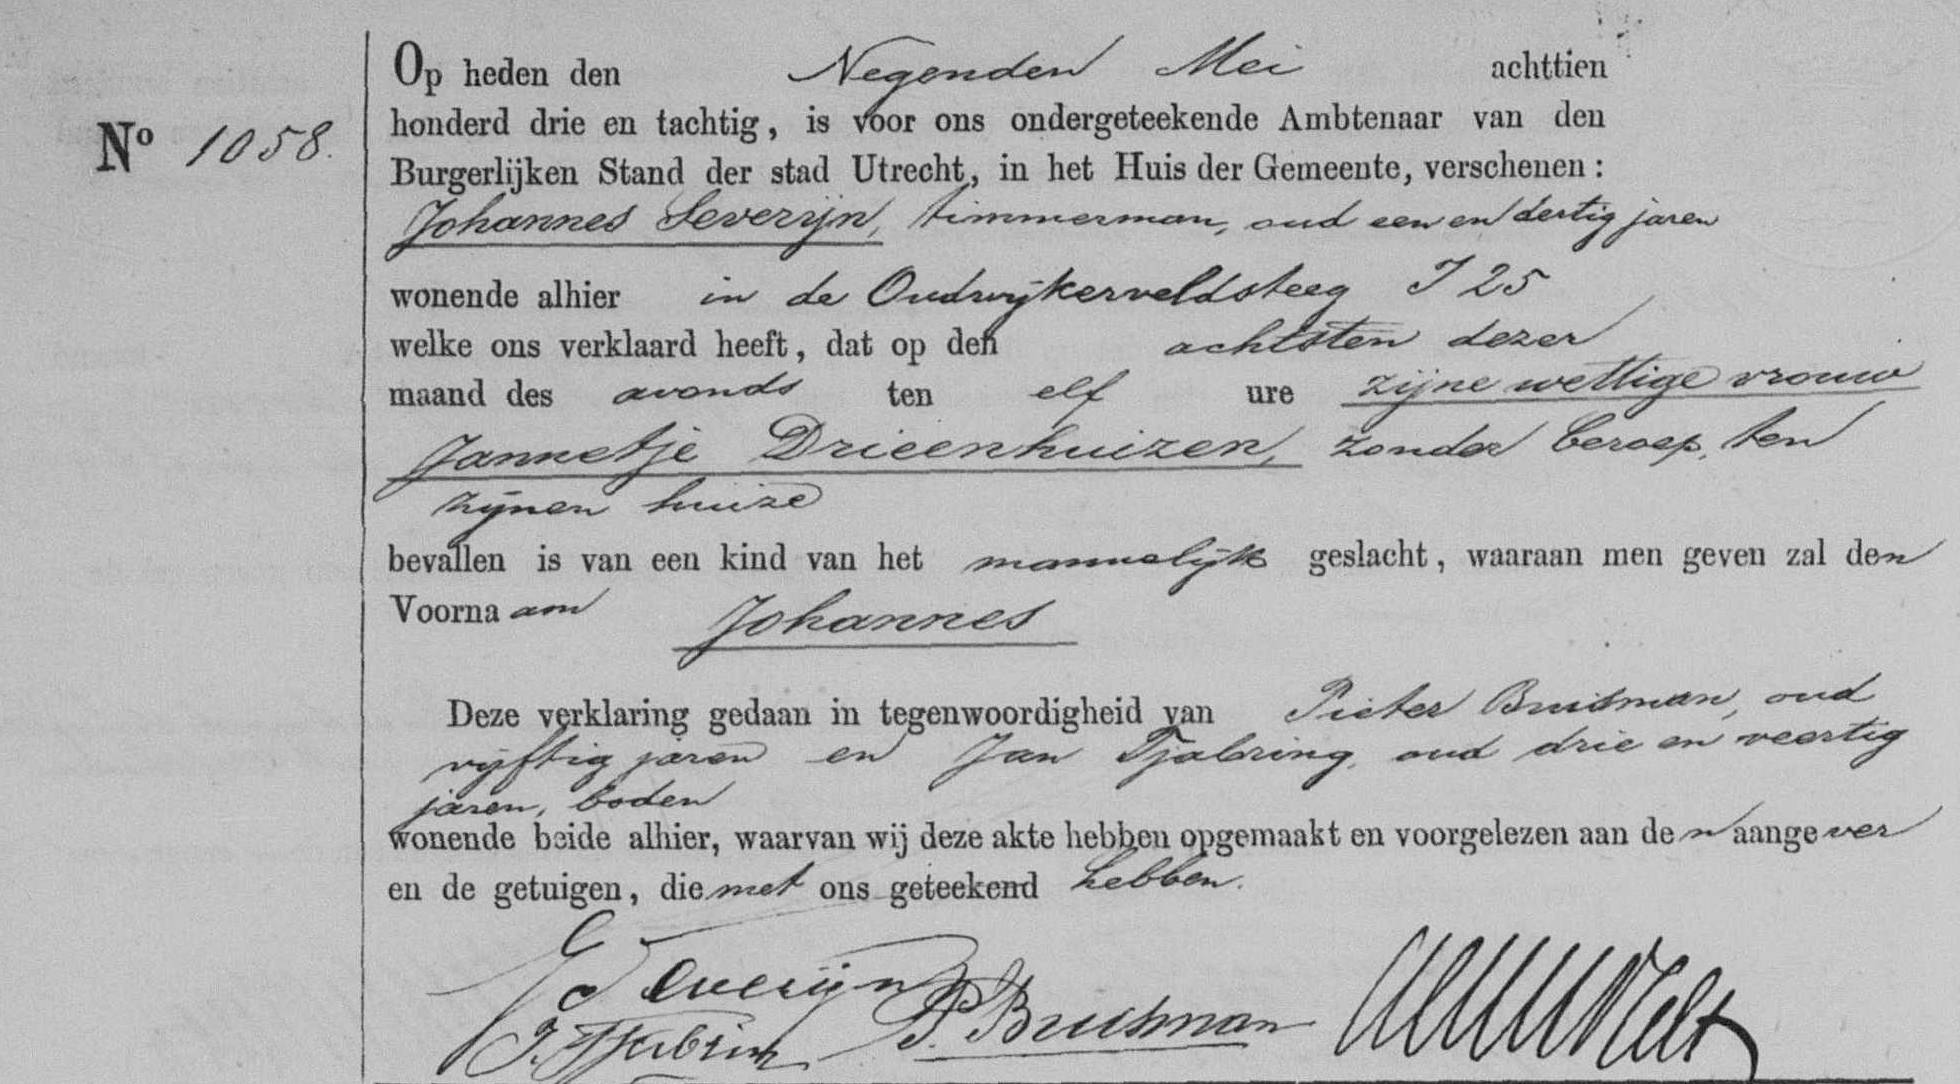 Op heden den Negenden Mei achttien
honderd drie en tachtig, is voor ons ondergeteekende Ambtenaar van den
No 1058.
Burgerlijken Stand der stad Utrecht, in het Huis der Gemeente, verschenen:
Johannes Severijn, timmerman, oud een en dertig jaren
wonende alhier in de Oudwijkerveldsteeg I 25
welke ons verklaard heeft, dat op den achtsten dezer
maand des avonds ten elf ure zijne wettige vrouw
Jannetje Drieenhuizen, zonder beroep, ten
zijnen huize
bevallen is van een kind van het mannelijk geslacht, waaraan men geven zal den
Voornaam Johannes
Deze verklaring gedaan in tegenwoordigheid van Pieter Buisman, oud
vijftig jaren en Jan Tjabring, oud drie en veertig
jaren, boden
wonende beide alhier, waarvan wij deze akte hebben opgemaakt en voorgelezen aan den aangever
en de getuigen, die met ons geteekend hebben.
J Severijn
J. Tjabring P. Buisman